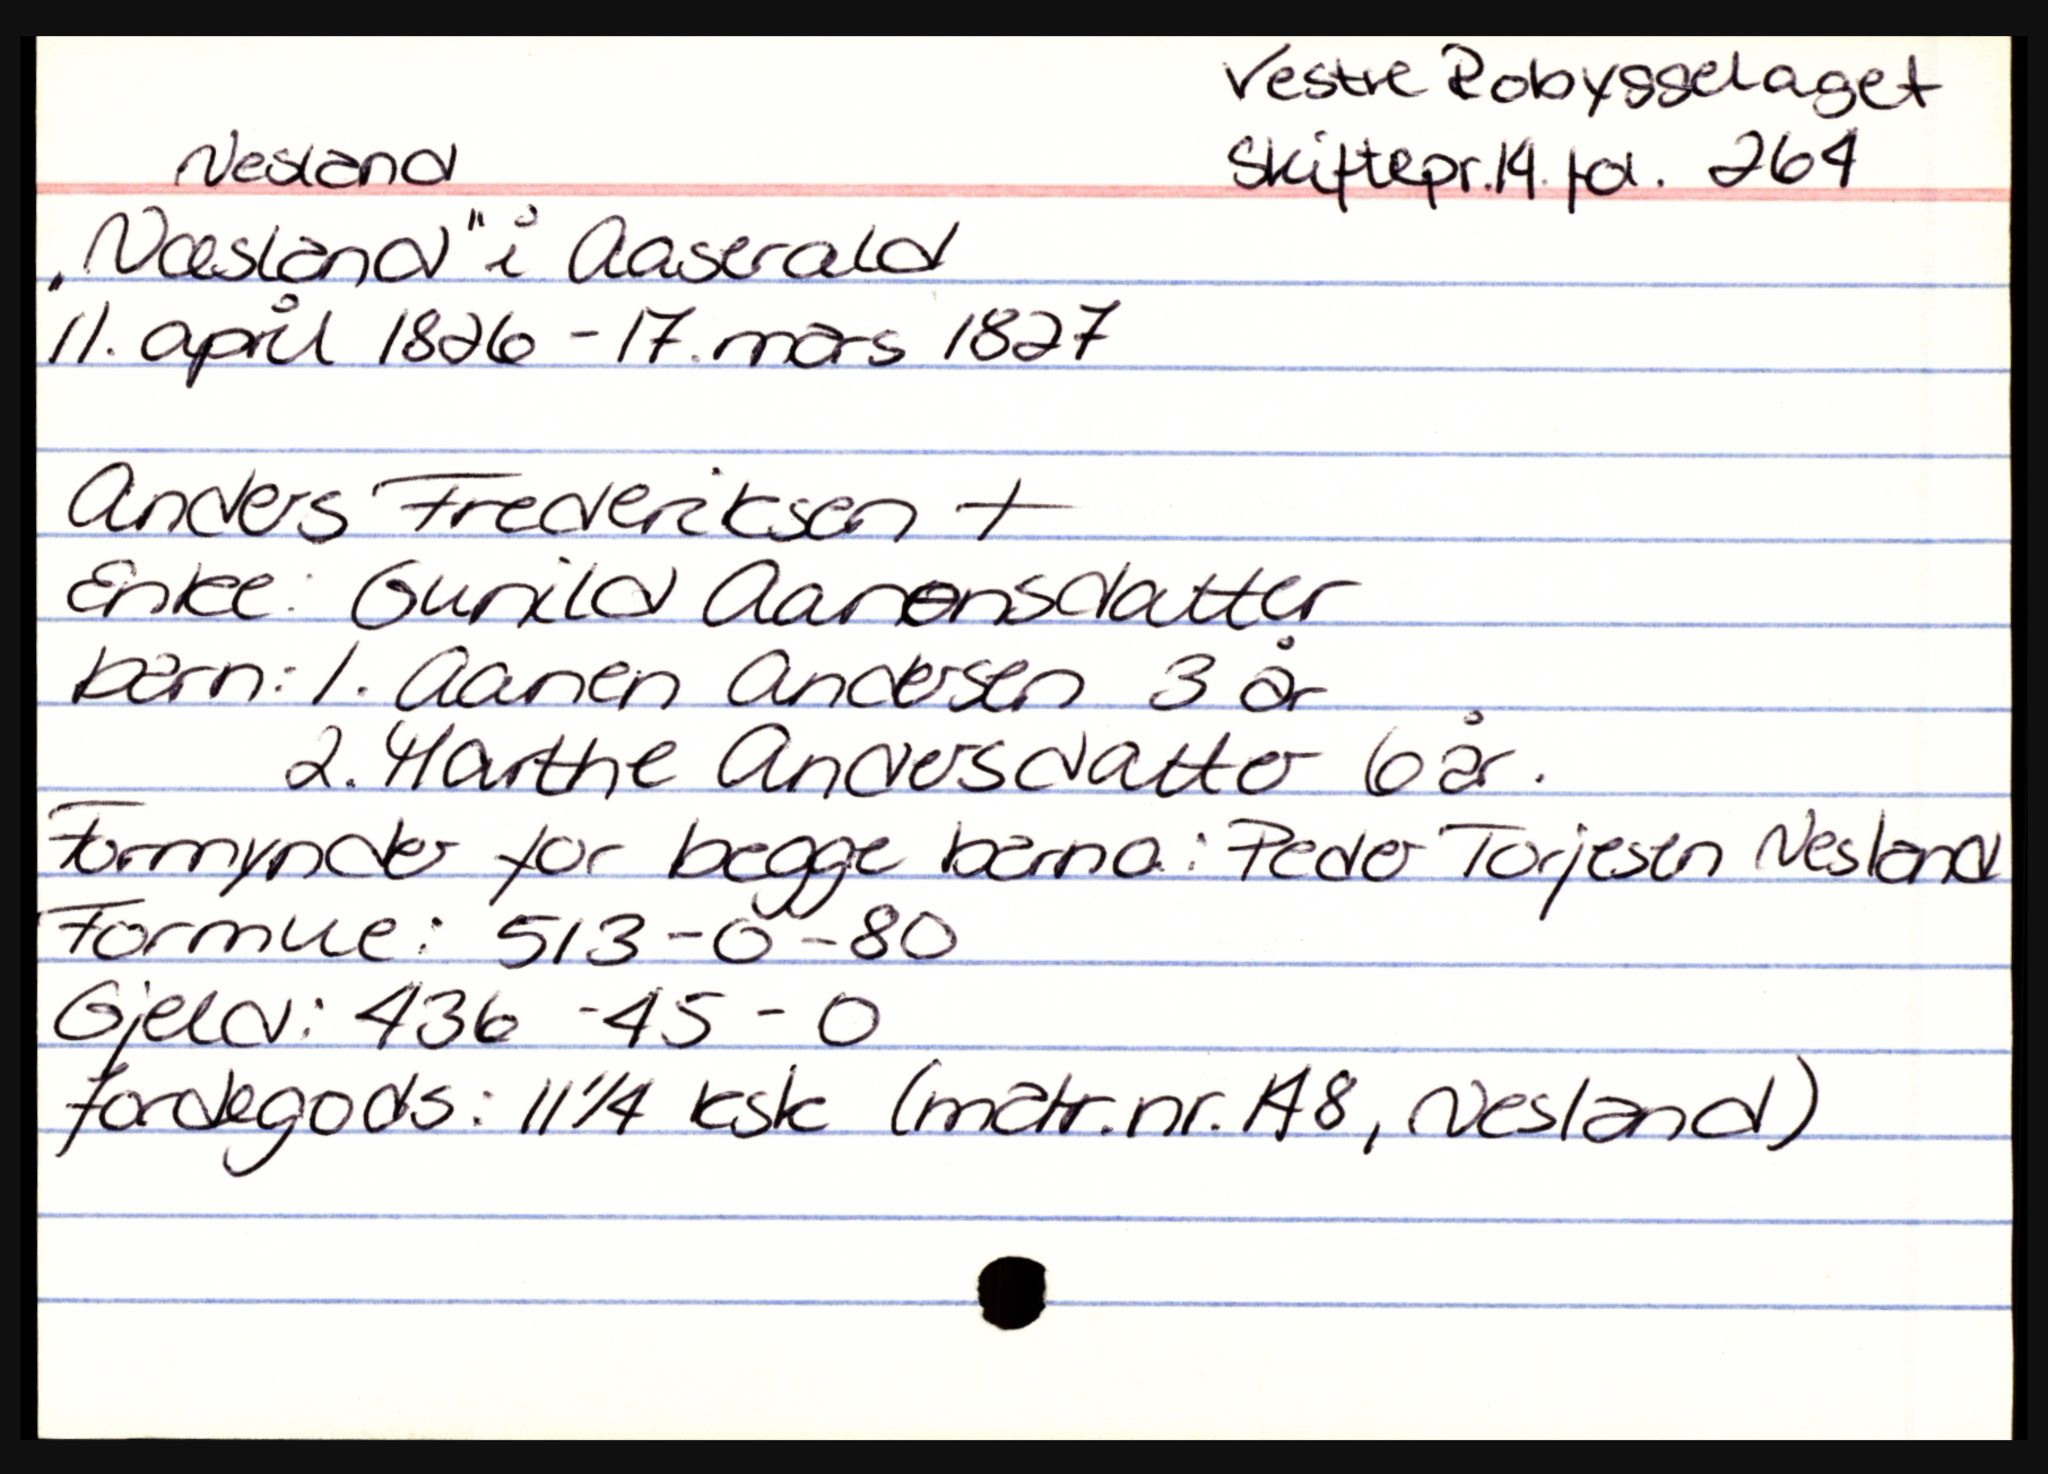 Vestre Robyggelaget
Nesland
Skiftepr.14. fol. 264
„Næsland" i Aaserald
11. april 1826 - 17. mars 1827
Anders Frederiksen +
Enke: Gunild Aanonsdatter
barn: 1. Aanen Andersen 3 år
2. Marthe Andersdatter 6 år.
Formynder for begge barna: Peder Torjesen Nesland
Formue: 513 - 0 - 80
Gjeld: 436 - 45 - 0
Jordegods: 11 1/4 ksk (matr.nr. 148, Nesland)